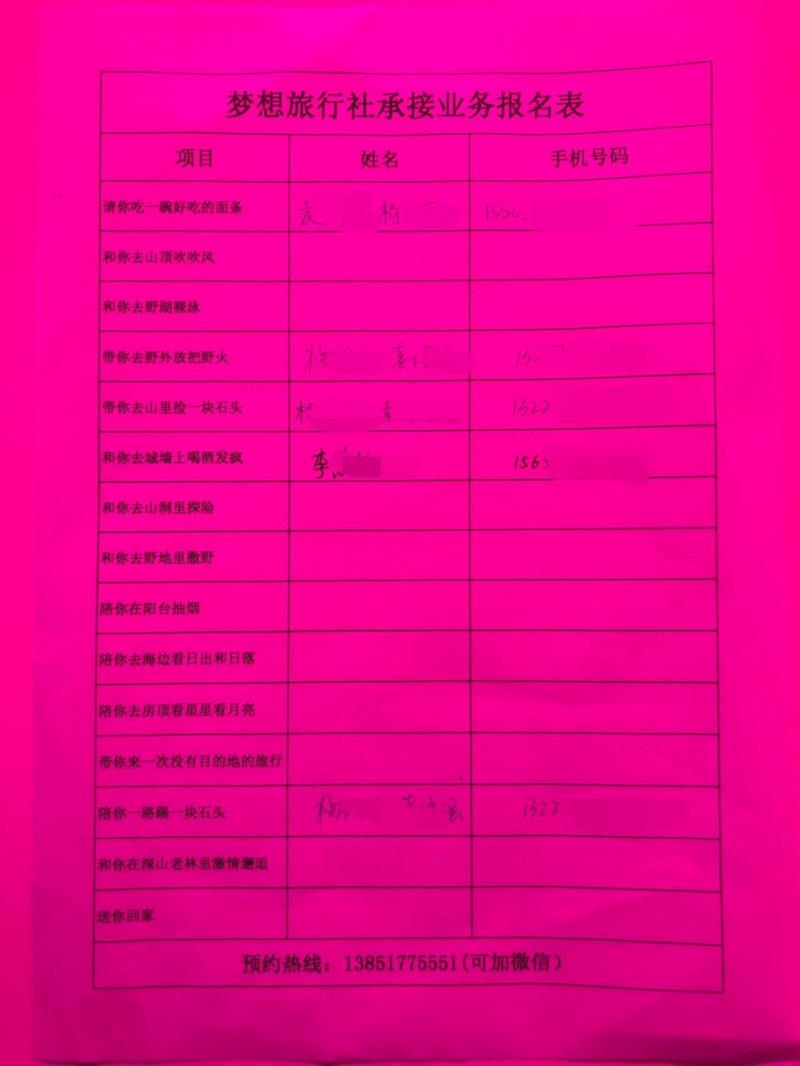 梦想旅行社承接业务报名表
项目 姓名 手机号码
请你吃一碗好吃的面条 袁 杨 155
和你去山顶吹吹风
和你去野湖裸泳
带你去野外放把野火 杨 袁 13
带你去山里捡一块石头 杨 袁 1322
和你去城墙上喝酒发疯 李 156
和你去山洞里探险
和你去野地里撒野
陪你在阳台抽烟
陪你去海边看日出和日落
陪你去房顶看星星看月亮
带你来一次没有目的地的旅行
陪你一路踢一块石头 杨 1322
和你在深山老林里激情邂逅
送你回家
预约热线：13851775551(可加微信）